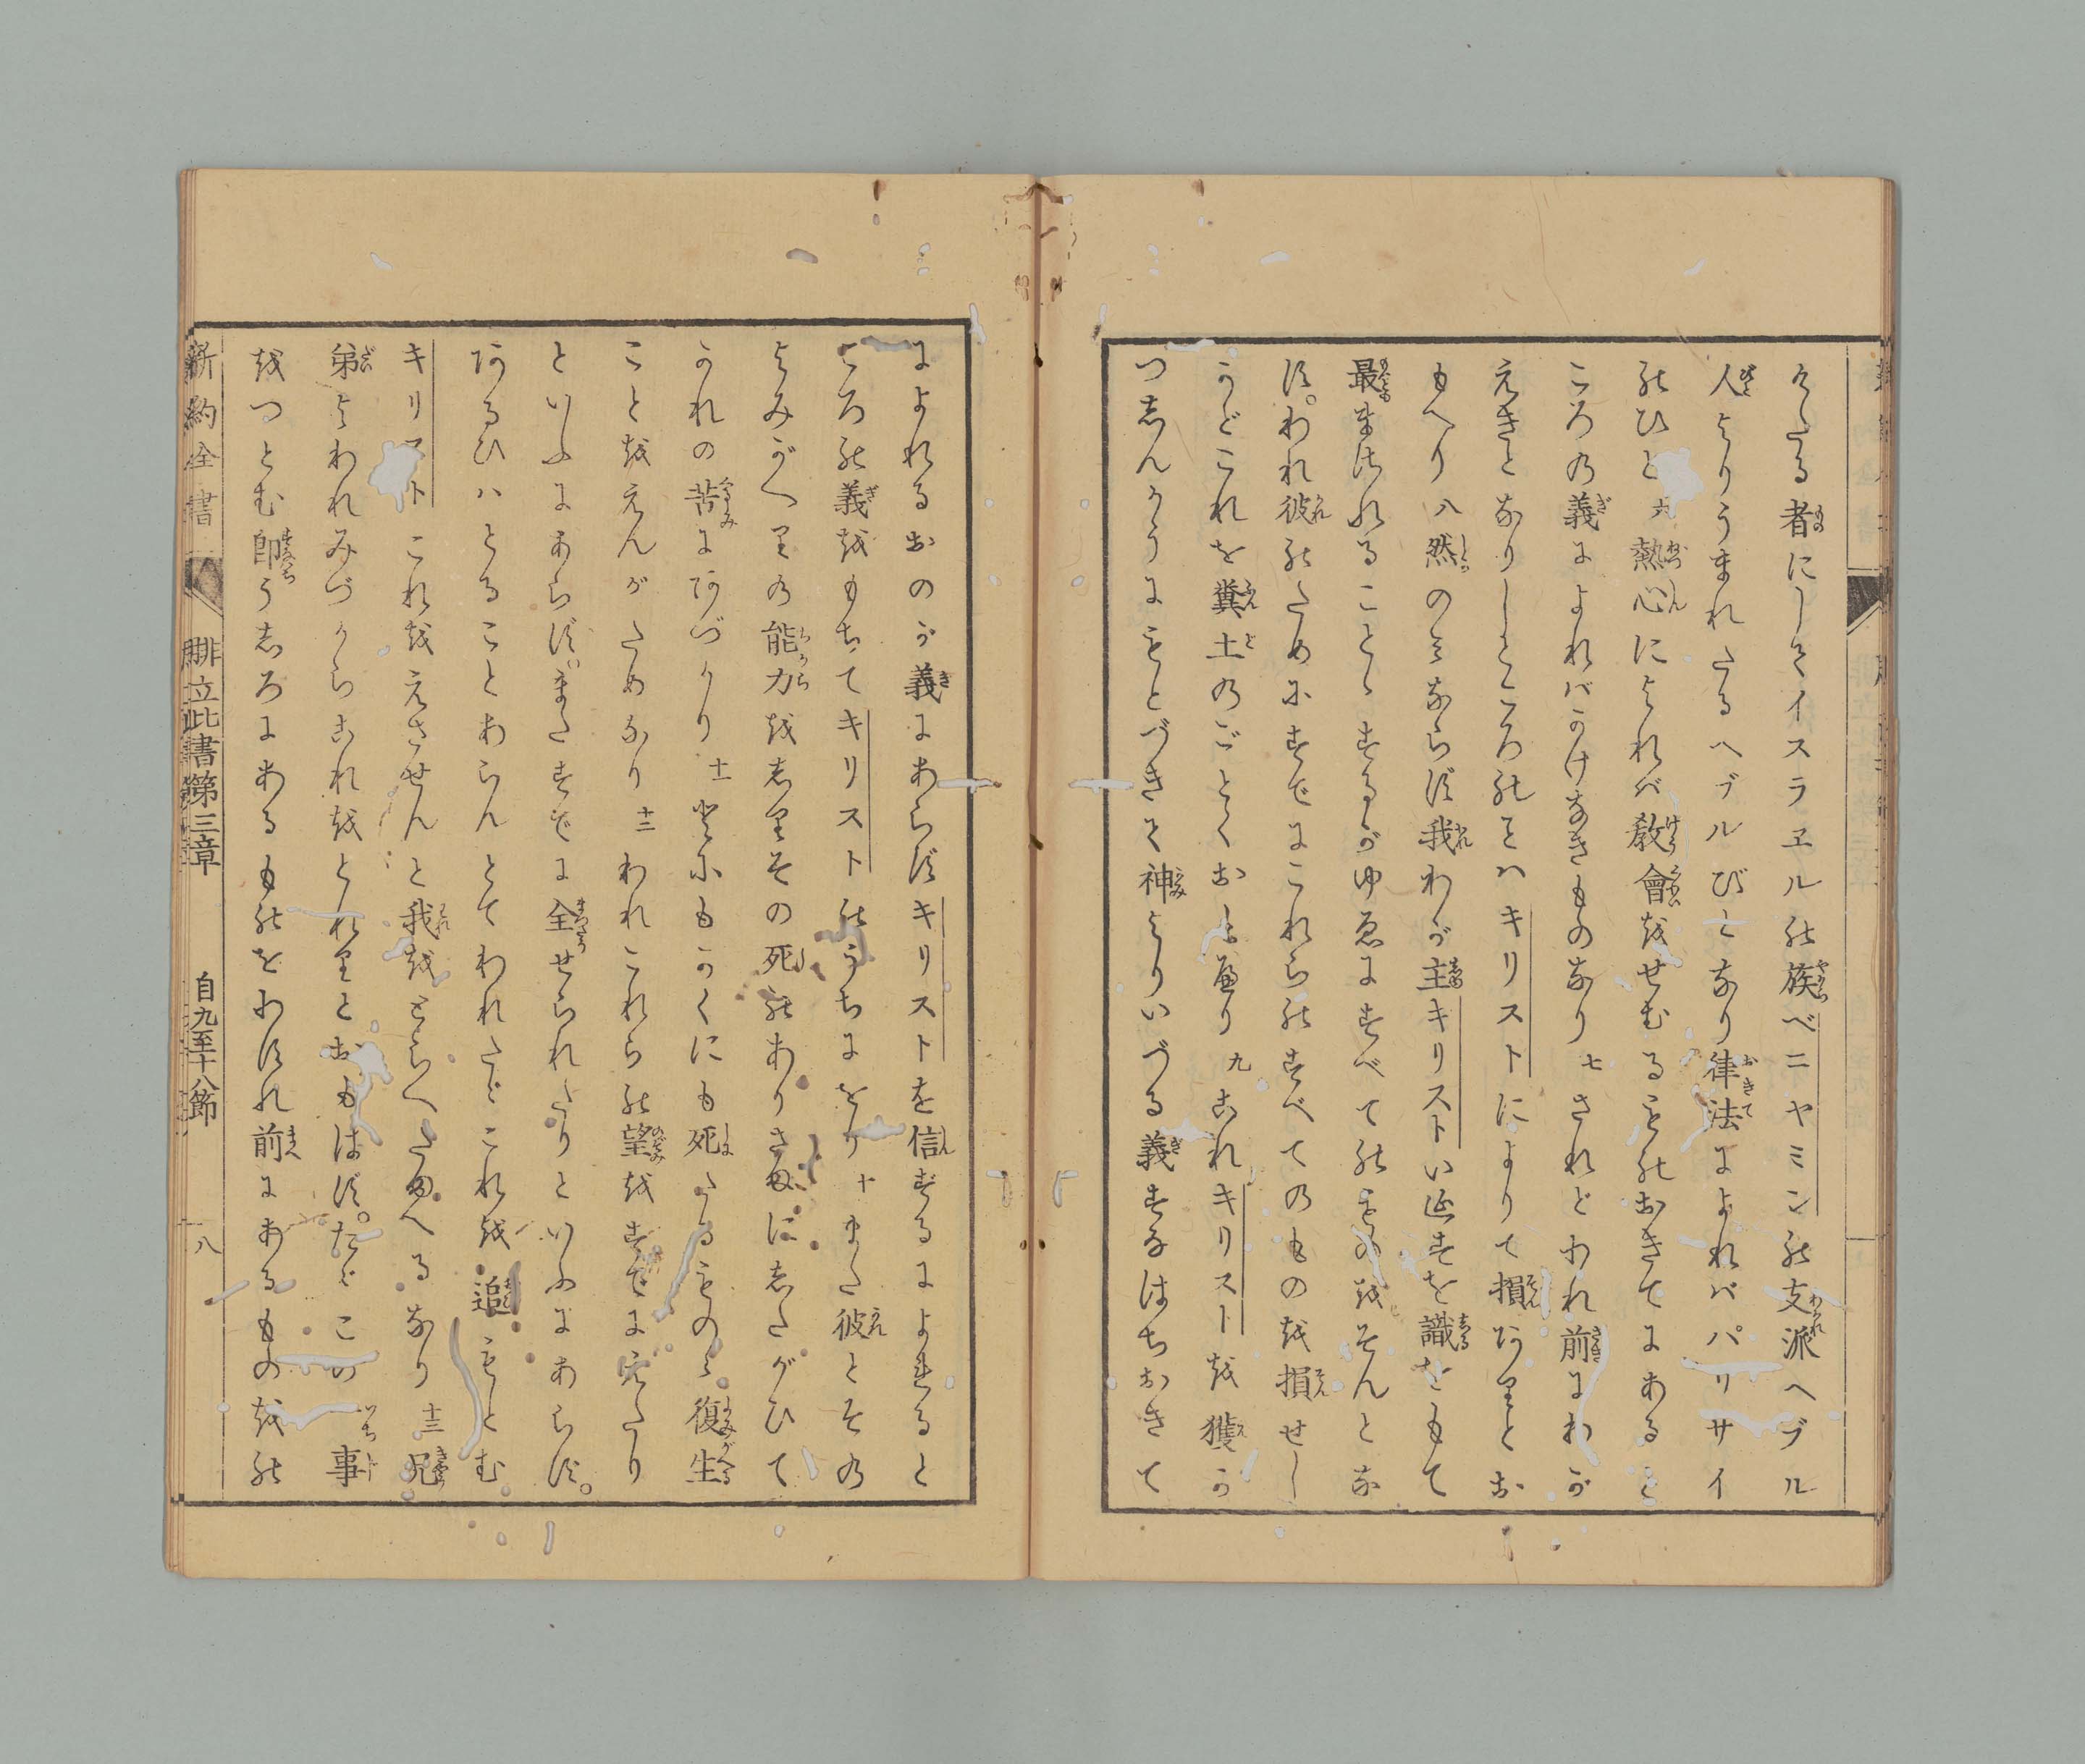 くたる者にしてイスラヱル能族ベニヤミン能支派ヘブル
人よりうまれたるヘブルびとなり律法によれバパリサイ
能ひと六熱心によれバ教會越せむるもの能おきてにある
ころの義によれバかけなきものなり七されどわれ前にわが
えきとなりしところ能をハキリストによりて損ありとお
もへり八然のミならず我わが主キリスト
最まされることゝするがゆゑにすべて能もの越そんとな
す。われ彼能ためにすでにこれら能すべてのもの越損せし
かどこれを糞土のごとくおもへり九われキリスト越獲か
つ志んかうにもとづきて神よりいづる義すなはちおきて
によれるおのが義にあらずキリストを信ずるによれると
ころ能義越もちてキリスト能うちにをり十また彼とその
よみがへりの能力越志りその死能ありさまに志たがひて
かれの苦にあづかり十一いかにもかくにも死たるものゝ復生
こと越えんがためなり十二われこれら能望越すでに究たり
といふにあらず。またすでに全せられたりといふにあらず。
あるひハとることあらんとてわれたゞこれ越追もとむ
キリストこれ越えさせんと我越とらへたまへるなり十三兄
弟よわれみづからわれ越とれりとおもはず。たゞこの一事
越つとむ即うしろにあるもの能をわすれ前にあるもの越能
新約全書 腓立比書第三章 自九至十八節 八